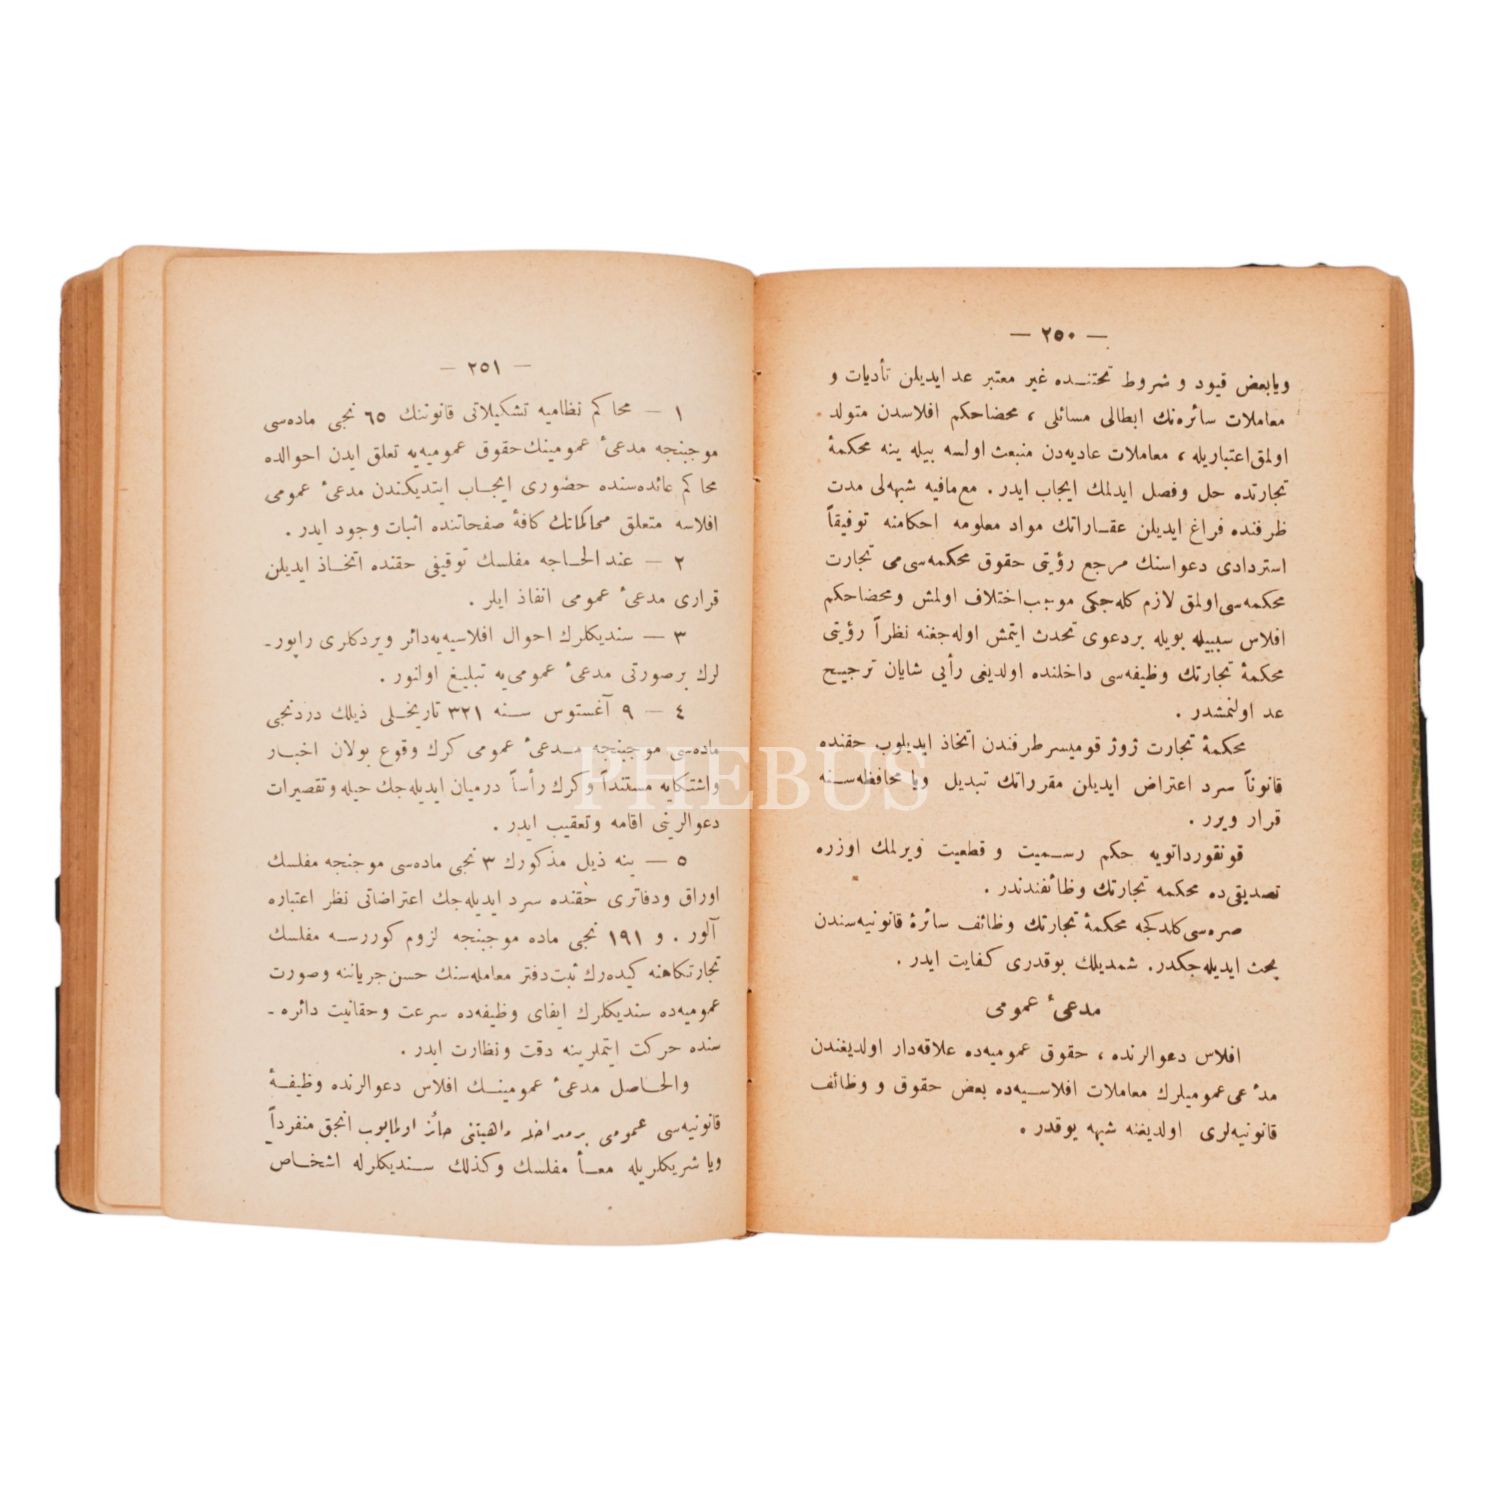 — ٢٥٠ —
ويابعض قيود و شروط تحتنده غير معتبر عد ايديلن تأديات و
معاملات سائره‌نك ابطالى مسائلى ، محضاحكم افلاسدن متولد
اولمق اعتباريله ، معاملات عاديه‌دن منبعث اولسه بيله ينه محكمهٔ
تجارتده حل وفصل ايدلمك ايجاب ايدر . مع‌مافيه شبهه‌لى مدت
ظرفنده فراغ ايديلن عقاراتك مواد معلومه احكامنه توفيقاً
استردادى دعواسنك مرجع رؤيتى حقوق محكمه‌سى‌مى تجارت
محكمه‌سى اولمق لازم كله‌جكى موجب اختلاف اولمش ومحضاحكم
افلاس سببيله بويله بردعوى تحدث ايتمش اوله‌جغنه نظراً رؤيتى
محكمهٔ تجارتك وظيفه‌سى داخلنده اولديغى رأيى شايان ترجيح
عد اولنمشدر .
محكمهٔ تجارت ژوژ قوميسر طرفندن اتخاذ ايديلوب حقنده
قانوناً سرد اعتراض ايديلن مقرراتك تبديل ويا محافظه‌سنه
قرار ويرر .
قونقورداتويه حكم رسميت و قطعيت ويرلمك اوزره
تصديقى‌ده محكمه تجارتك وظائفندندر .
صره‌سى كلدكجه محكمهٔ تجارتك وظائف سائرهٔ قانونيه‌سندن
بحث ايديله‌جكدر. شمديلك بوقدرى كفايت ايدر .
مدعىٔ عمومى
افلاس دعوالرنده ، حقوق عموميه‌ده علاقه‌دار اولديغندن
مدعى عموميلرك معاملات افلاسيه‌ده بعض حقوق و وظائف
قانونيه‌لرى اولديغنه شبهه يوقدر .
— ٢٥١ —
١ — محاكم نظاميه تشكيلاتى قانوننك ٦٥ نجى ماده‌سى
موجبنجه مدعىٔ عمومينك حقوق عموميه‌يه تعلق ايدن احوالده
محاكم عائده‌سنده حضورى ايجاب ايتديكندن مدعىٔ عمومى
افلاسه متعلق محاكماتك كافهٔ صفحاتنده اثبات وجود ايدر .
٢ — عند الحاجه مفلسك توقيفى حقنده اتخاذ ايديلن
قرارى مدعىٔ عمومى انفاذ ايلر .
٣ — سنديكلرك احوال افلاسيه‌يه‌دائر ويردكلرى راپور ـ
لرك برصورتى مدعىٔ عمومى‌يه تبليغ اولنور .
٤ — ٩ آغستوس سنه ٣٢١ تاريخلى ذيلك دردنجى
ماده‌سى موجبنجه مدعىٔ عمومى كرك وقوع بولان اخبار
واشتكايه مستنداً وكرك رأساً درميان ايديله‌جك حيله وتقصيرات
دعوالرينى اقامه وتعقيب ايدر .
٥ — ينه ذيل مذكورك ٣ نجى ماده‌سى موجنجه مفلسك
اوراق ودفاترى حقنده سرد ايديله‌جك اعتراضاتى نظر اعتباره
آلور . و ١٩١ نجى ماده موجبنجه لزوم كوررسه مفلسك
تجارتكاهنه كيده‌رك ثبت دفتر معامله‌سنك حسن جرياننه وصورت
عموميه‌ده سنديكلرك ايفاى وظيفه‌ده سرعت وحقانيت دائره ـ
سنده حركت ايتملرينه دقت ونظارت ايدر .
والحاصل مدعىٔ عمومينك افلاس دعوالرنده وظيفهٔ
قانونيه‌سى عمومى برمداخله ماهيتنى حائز اولمايوب انجق منفرداً
ويا شريكلريله معاً مفلسك وكذلك سنديكلرله اشخاص
PHEBUS